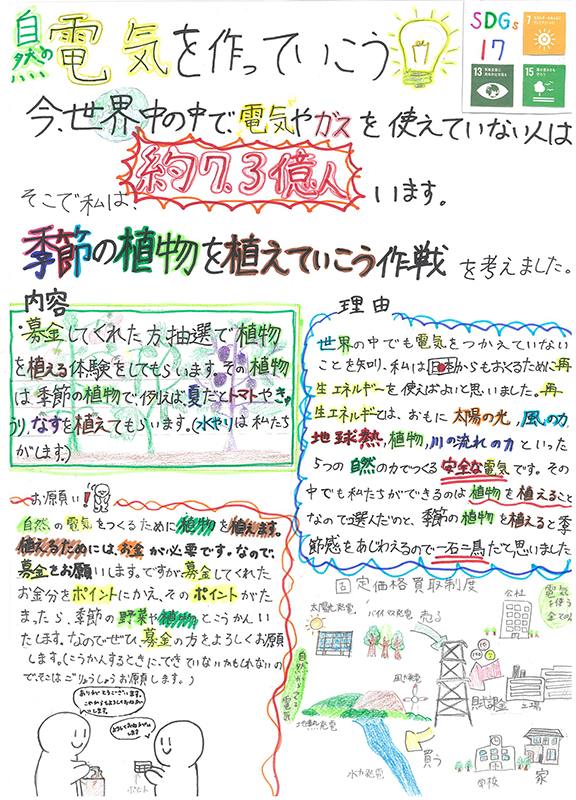 自然の電気を作っていこう
SDGs
17
7
13
15
今、世界中の中で、電気やガスを使えていない人は
約7.3億人
います。
そこで私は、
季節の植物を植えていこう作戦を考えました。
内容
・募金してくれた方、抽選で植物
を植える体験をしてもらいます。その植物
は季節の植物で、例えば夏だとトマトやき
うり、なすを植えてもらいます。(水やりは私たち
がします。)
理由
世界の中でも電気をつかえていない
ことを知り、私は日本からもおくるために再
生エネルギーを使えばよいと思いました。再
生エネルギーとは、おもに太陽の光,風の力
地球熱,植物,川の流れの力といった
5つの自然の力でつくる安全な電気です。その
中でも私たちができるのは植物を植えること
なので選んだのと、季節の植物を植えると季
節感をあじわえるので一石二鳥だと思いました
お願い!
自然の電気をつくるために植物を植えます。
植えるためには、お金が必要です。なので、
募金をお願いします。ですが募金してくれた
お金分をポイントにかえ、そのポイントがた
まったら、季節の野菜や植物とこうかんい
たします。なのでぜひ、募金の方をよろしくお願
します。(こうかんするときに、できていないかもしれないの
で、そこはごりょうしょうお願します。)
ありがとうございます。
ポイント
固定価格買取制度
太陽光発電
バイオマス発電
売る
会社
電気
を使う
自然からできる電気
風力発電
地熱発電
賦課金
工場
買う
水力発電
学校
家